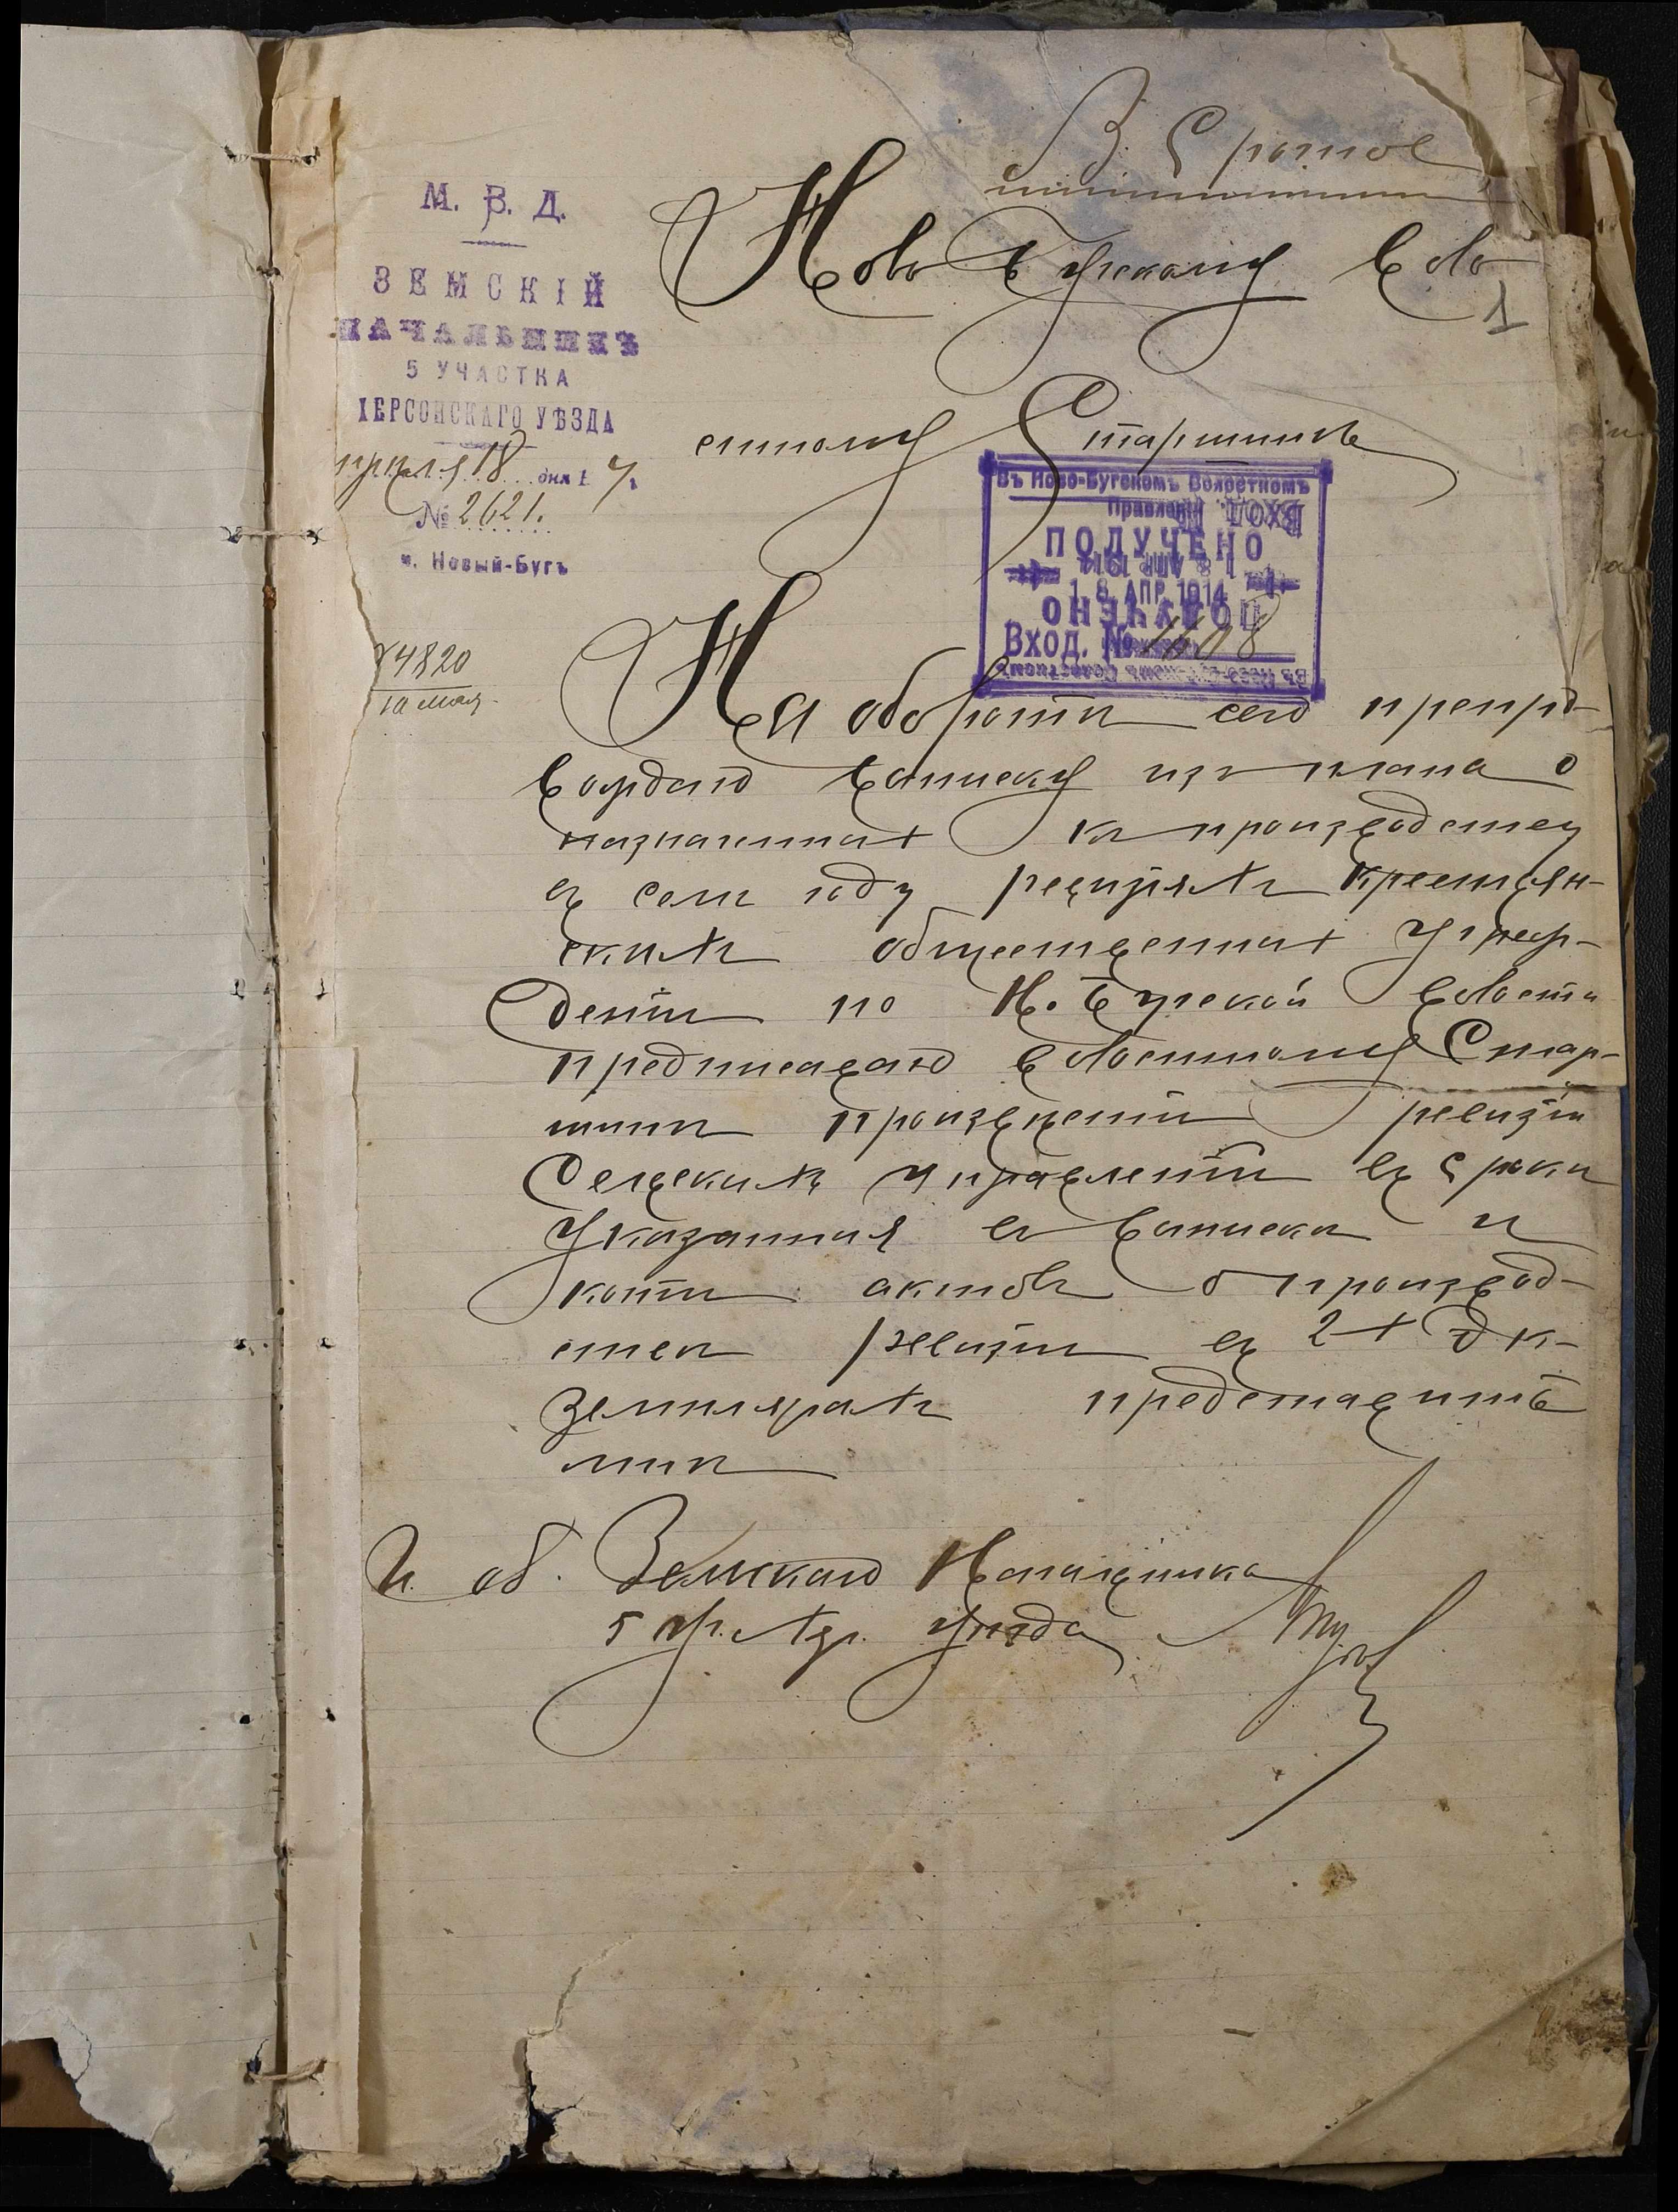 В. Срочное
М. В. Д.
Ново Бугскому Воло
1
ЗЕМСКІЙ
НАЧАЛЬНИКЪ
5 УЧАСТКА
ХЕРСОНСКАГО УѢЗДА
преля 18 дня 1 4 г.
№ 2621.
м. Новый-Бугъ
стному Старшинѣ
Въ Ново-Бугскомъ Волостномъ
Правленіи
ПОЛУЧЕНО
18 АПР. 1914
Вход. №
4820
10 мая
На оборотѣ сего препро-
вождаю выписку изъ плана о
назначенныхъ къ производству
въ семъ году ревизіяхъ крестьян-
скихъ общественныхъ учреж-
деній по Н. Бугской волости
предписываю Волостному Стар-
шинѣ произвести ревизіи
Сельскихъ Управленій въ сроки
указанныя въ выпискѣ и
копіи актовъ о производ-
ствѣ ревизіи въ 2-х эк-
земплярахъ представить
мнѣ
И. об. Земскаго Начальника
5 уч. Хер. уѣзда